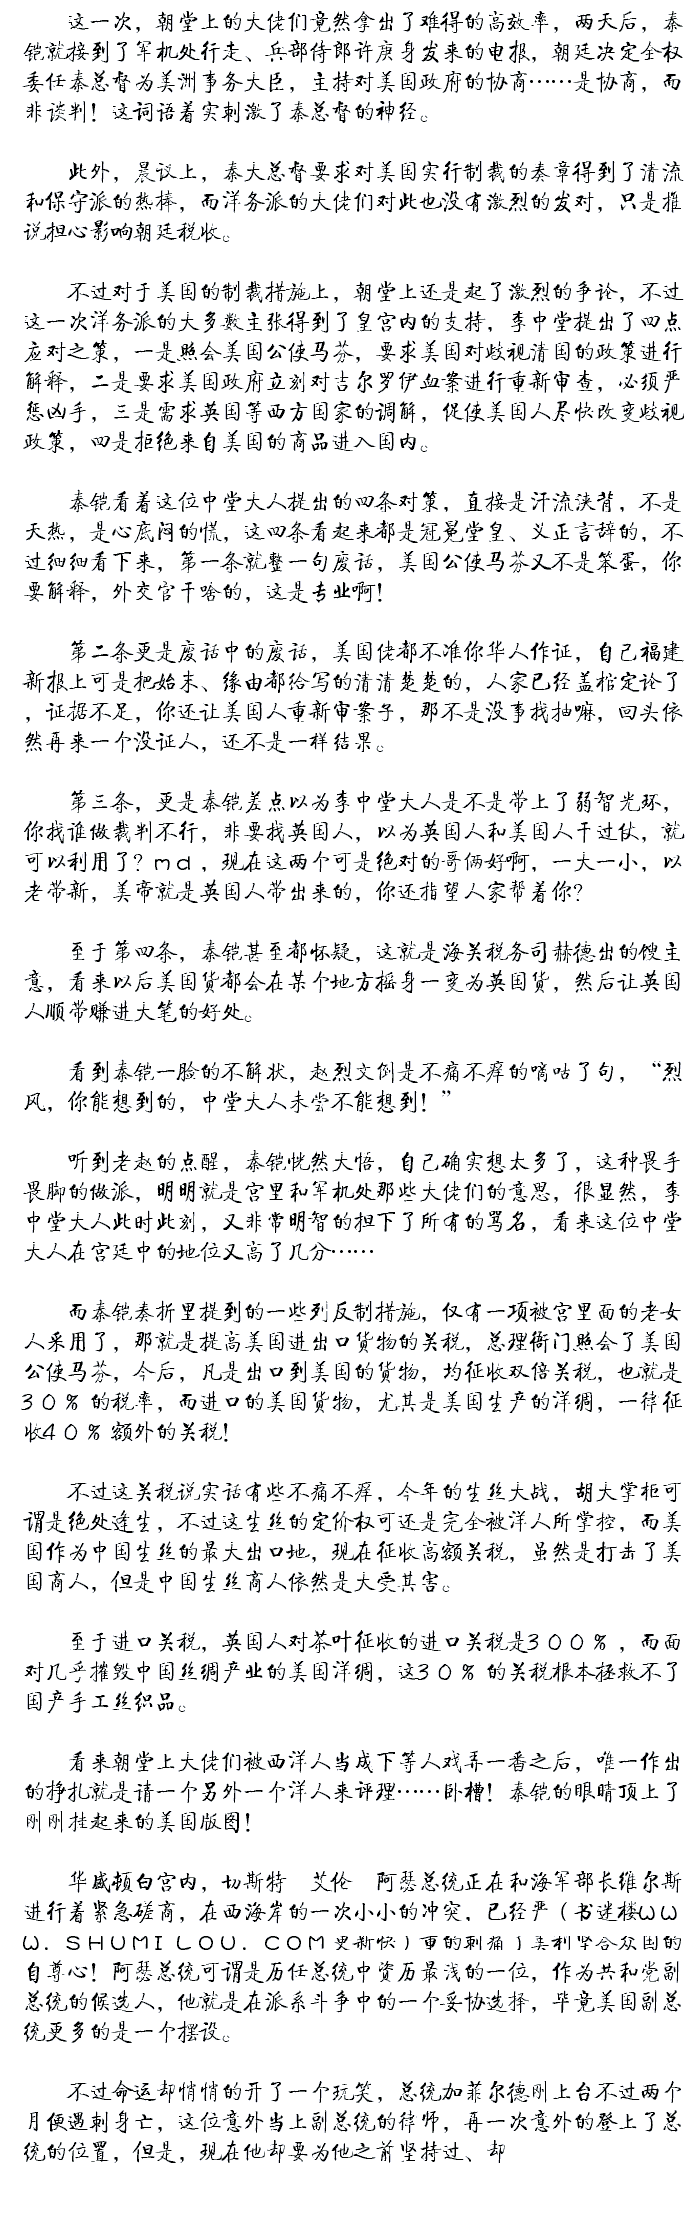 这一次，朝堂上的大佬们竟然拿出了难得的高效率，两天后，秦
铠就接到了军机处行走、兵部侍郎许庚身发来的电报，朝廷决定全权
委任秦总督为美洲事务大臣，主持对美国政府的协商……是协商，而
非谈判！这词语着实刺激了秦总督的神经。
此外，晨议上，秦大总督要求对美国实行制裁的奏章得到了清流
和保守派的热捧，而洋务派的大佬们对此也没有激烈的发对，只是推
说担心影响朝廷税收。
不过对于美国的制裁措施上，朝堂上还是起了激烈的争论，不过
这一次洋务派的大多数主张得到了皇宫内的支持，李中堂提出了四点
应对之策，一是照会美国公使马芬，要求美国对歧视清国的政策进行
解释，二是要求美国政府立刻对吉尔罗伊血案进行重新审查，必须严
惩凶手，三是需求英国等西方国家的调解，促使美国人尽快改变歧视
政策，四是拒绝来自美国的商品进入国内。
秦铠看着这位中堂大人提出的四条对策，直接是汗流浃背，不是
天热，是心底闷的慌，这四条看起来都是冠冕堂皇、义正言辞的，不
过细细看下来，第一条就整一句废话，美国公使马芬又不是笨蛋，你
要解释，外交官干啥的，这是专业啊！
第二条更是废话中的废话，美国佬都不准你华人作证，自己福建
新报上可是把始末、缘由都给写的清清楚楚的，人家已经盖棺定论了
，证据不足，你还让美国人重新审案子，那不是没事找抽嘛，回头依
然再来一个没证人，还不是一样结果。
第三条，更是秦铠差点以为李中堂大人是不是带上了弱智光环，
你找谁做裁判不行，非要找英国人，以为英国人和美国人干过仗，就
可以利用了？md，现在这两个可是绝对的哥俩好啊，一大一小，以
老带新，美帝就是英国人带出来的，你还指望人家帮着你？
至于第四条，秦铠甚至都怀疑，这就是海关税务司赫德出的馊主
意，看来以后美国货都会在某个地方摇身一变为英国货，然后让英国
人顺带赚进大笔的好处。
看到秦铠一脸的不解状，赵烈文倒是不痛不痒的嘀咕了句，“烈
风，你能想到的，中堂大人未尝不能想到！”
听到老赵的点醒，秦铠恍然大悟，自己确实想太多了，这种畏手
畏脚的做派，明明就是宫里和军机处那些大佬们的意思，很显然，李
中堂大人此时此刻，又非常明智的担下了所有的骂名，看来这位中堂
大人在宫廷中的地位又高了几分……
而秦铠奏折里提到的一些列反制措施，仅有一项被宫里面的老女
人采用了，那就是提高美国进出口货物的关税，总理衙门照会了美国
公使马芬，今后，凡是出口到美国的货物，均征收双倍关税，也就是
30%的税率，而进口的美国货物，尤其是美国生产的洋绸，一律征
收40%额外的关税！
不过这关税说实话有些不痛不痒，今年的生丝大战，胡大掌柜可
谓是绝处逢生，不过这生丝的定价权可还是完全被洋人所掌控，而美
国作为中国生丝的最大出口地，现在征收高额关税，虽然是打击了美
国商人，但是中国生丝商人依然是大受其害。
至于进口关税，英国人对茶叶征收的进口关税是300%，而面
对几乎摧毁中国丝绸产业的美国洋绸，这30%的关税根本拯救不了
国产手工丝织品。
看来朝堂上大佬们被西洋人当成下等人戏弄一番之后，唯一作出
的挣扎就是请一个另外一个洋人来评理……卧槽！秦铠的眼睛顶上了
刚刚挂起来的美国版图！
华盛顿白宫内，切斯特　艾伦　阿瑟总统正在和海军部长维尔斯
进行着紧急磋商，在西海岸的一次小小的冲突，已经严（书迷楼WW
W.SHUMILOU.COM更新快）重的刺痛了美利坚合众国的
自尊心！阿瑟总统可谓是历任总统中资历最浅的一位，作为共和党副
总统的候选人，他就是在派系斗争中的一个妥协选择，毕竟美国副总
统更多的是一个摆设。
不过命运却悄悄的开了一个玩笑，总统加菲尔德刚上台不过两个
月便遇刺身亡，这位意外当上副总统的律师，再一次意外的登上了总
统的位置，但是，现在他却要为他之前坚持过、却